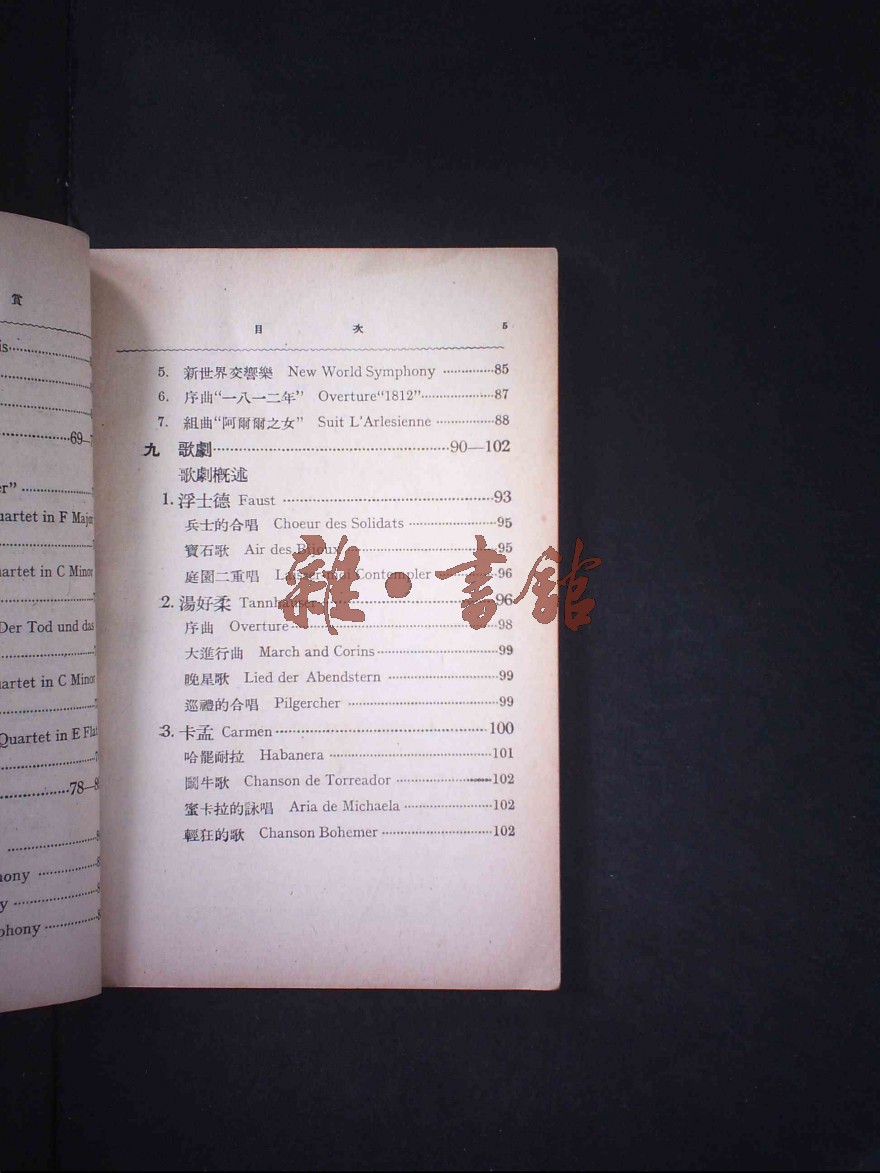 賞
is
69—
r”
uartet in F Major
uartet in C Minor
Der Tod und das
uartet in C Minor
Quartet in E Flat
78—8
hony
y
phony
目 次 5
5. 新世界交響樂 New World Symphony 85
6. 序曲“一八一二年” Overture“1812” 87
7. 組曲“阿爾爾之女” Suit L'Arlesienne 88
九 歌劇 90—102
歌劇概述
1. 浮士德 Faust 93
兵士的合唱 Choeur des Solidats 95
寶石歌 Air des Bijoux 95
庭園二重唱 Laisser-moi Contempler 96
2. 湯好柔 Tannhauser 96
序曲 Overture 98
大進行曲 March and Corins 99
晚星歌 Lied der Abendstern 99
巡禮的合唱 Pilgercher 99
3. 卡孟 Carmen 100
哈罷耐拉 Habanera 101
鬭牛歌 Chanson de Torreador 102
蜜卡拉的詠唱 Aria de Michaela 102
輕狂的歌 Chanson Bohemer 102
雜·書館